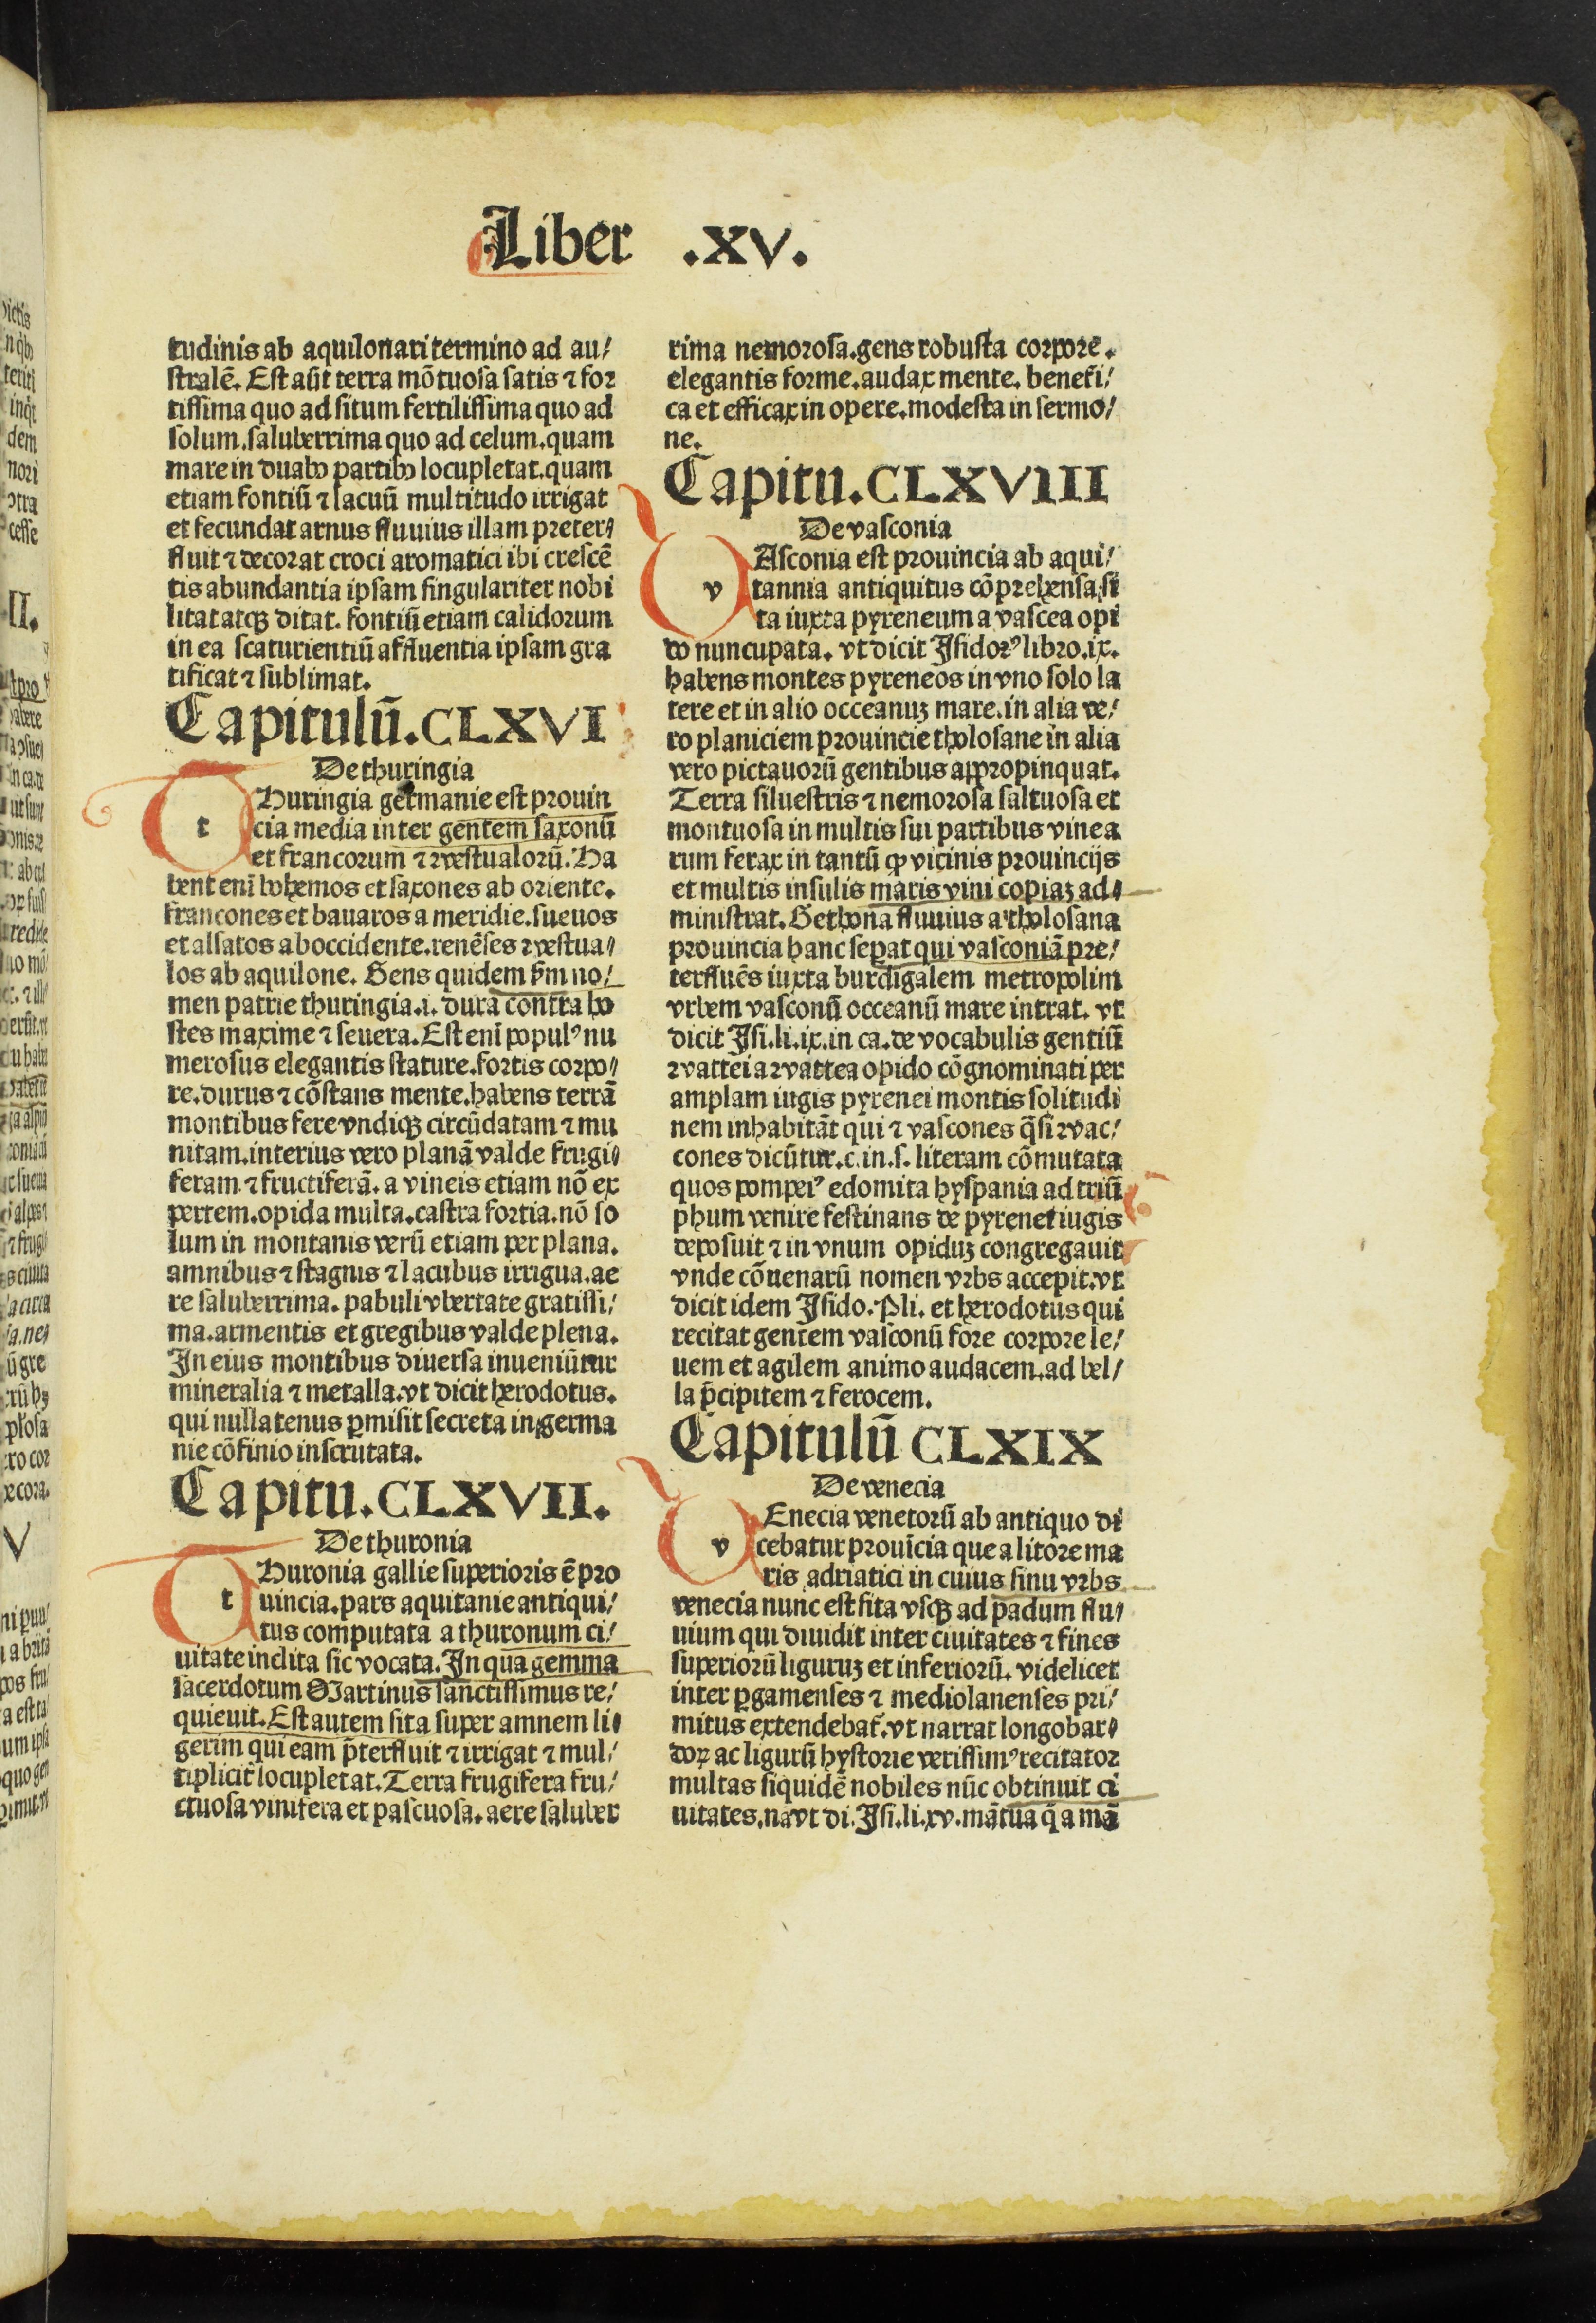 Liber .XV.
tudinis ab aquilonari termino ad au/
stralē. Est aūt terra mōtuosa satis ⁊ for
tissima quo ad situm fertilissima quo ad
solum. saluberrima quo ad celum. quam
mare in duabꝰ partibꝰ locupletat. quam
etiam fontiū ⁊ lacuū multitudo irrigat
et fecundat arnus fluuius illam preter/
fluit ⁊ decorat croci aromatici ibi crescē
tis abundantia ipsam singulariter nobi
litat atqꝫ ditat. fontiū etiam calidorum
in ea scaturientiū affluentia ipsam gra
tificat ⁊ sublimat.
Capitulū. CLXVI
De thuringia
t Huringia germanie est prouin
cia media inter gentem saxonū
et francorum ⁊ westualorū. Ha
bent enī bohemos et saxones ab oriente.
francones et bauaros a meridie. sueuos
et alsatos ab occidente. renēses ⁊ westua/
los ab aquilone. Gens quidem ẜm no/
men patrie thuringia .i. dura contra ho
stes maxime ⁊ seuera. Est enī populꝰ nu
merosus elegantis stature. fortis corpo/
re. durus ⁊ cōstans mente. habens terrā
montibus fere vndiqꝫ circūdatam ⁊ mu
nitam. interius vero planā valde frugi/
feram ⁊ fructiferā. a vineis etiam nō ex
pertem. opida multa. castra fortia. nō so
lum in montanis verū etiam per plana.
amnibus ⁊ stagnis ⁊ lacubus irrigua. ae
re saluberrima. pabuli vbertate gratissi/
ma. armentis et gregibus valde plena.
In eius montibus diuersa inueniūtur
mineralia ⁊ metalla. vt dicit herodotus.
qui nullatenus ꝑmisit secreta in germa
nie cōfinio inscrutata.
Capitu. CLXVII.
De thuronia
t Huronia gallie superioris ē pro
uincia. pars aquitanie antiqui/
tus computata a thuronum ci/
uitate inclita sic vocata. In qua gemma
sacerdotum Martinus sanctissimus re/
quieuit. Est autem sita super amnem li/
gerim qui eam p̄terfluit ⁊ irrigat ⁊ mul/
tiplicit̄ locupletat. Terra frugifera fru/
ctuosa vinifera et pascuosa. aere saluber
rima nemorosa. gens robusta corpore.
elegantis forme. audax mente. benefi/
ca et efficax in opere. modesta in sermo/
ne.
Capitu. CLXVIII
De vasconia
v Asconia est prouincia ab aqui/
tannia antiquitus cōprehensa. si
ta iuxta pyreneum a vascea opi
do nuncupata. vt dicit Isidorꝰ libro .ix.
habens montes pyreneos in vno solo la
tere et in alio occeanuꝫ mare. in alia ve/
ro planiciem prouincie tholosane in alia
vero pictauorū gentibus appropinquat.
Terra siluestris ⁊ nemorosa saltuosa et
montuosa in multis sui partibus vinea
rum ferax in tantū ꝙ vicinis prouincijs
et multis insulis maris vini copiaꝫ ad/
ministrat. Gethona fluuius a tholosana
prouincia hanc seꝑat qui vasconiā pre/
terfluēs iuxta burdigalem metropolim
vrbem vasconū occeanū mare intrat. vt
dicit Isi. li. ix. in ca. de vocabulis gentiū
wattei a wattea opido cōgnominati per
amplam iugis pyrenei montis solitudi
nem inhabitāt qui ⁊ vascones q̄si wac/
cones dicūtur. c. in .s. literam cōmutata
quos pompeiꝰ edomita hyspania ad triū
phum venire festinans de pyrenei iugis
deposuit ⁊ in vnum opiduꝫ congregauit
vnde cōuenarū nomen vrbs accepit. vt
dicit idem Isido. Pli. et herodotus qui
recitat gentem vasconū fore corpore le/
uem et agilem animo audacem. ad bel/
la p̄cipitem ⁊ ferocem.
Capitulū CLXIX
De venecia
v Enecia venetorū ab antiquo di
cebatur prouīcia que a litore ma
ris adriatici in cuius sinu vrbs
venecia nunc est sita vsqꝫ ad padum flu/
uium qui diuidit inter ciuitates ⁊ fines
superiorū liguruꝫ et inferiorū. videlicet
inter ꝑgamenses ⁊ mediolanenses pri/
mitus extendebat̄. vt narrat longobar/
doꝝ ac ligurū hystorie verissimꝰ recitator
multas siquidē nobiles nūc obtinuit ci
uitates. nā vt di. Isi. li. xv. mātua q̄ a mā